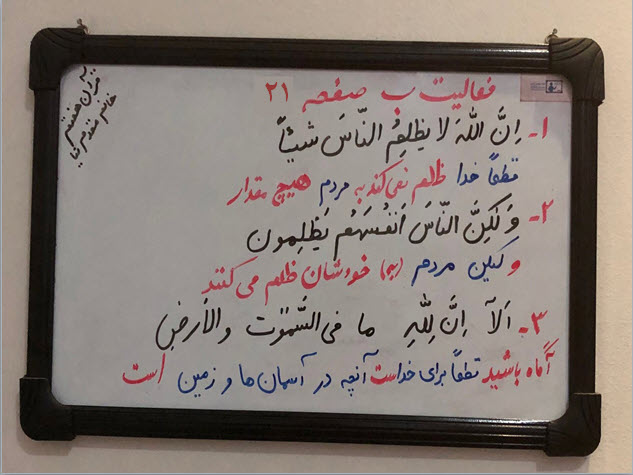 فعالیت ب صفحه ۲۱
قرآن هفتم
خانم مقدم نیا
۱- اِنَّ اللّٰهَ لا یَظلِمُ النّاسَ شَیئًا
قطعًا خدا ظلم نمی‌کند به مردم هیچ مقدار
۲- وَ لٰکِنَّ النّاسَ اَنفُسَهُم یَظلِمون
و لیکن مردم (به) خودشان ظلم می کنند
۳- اَلآ اِنَّ لِلّٰهِ ما فِی السَّمٰوٰتِ وَ الاَرضِ
آگاه باشید قطعًا برای خداست آنچه در آسمان ها و زمین است